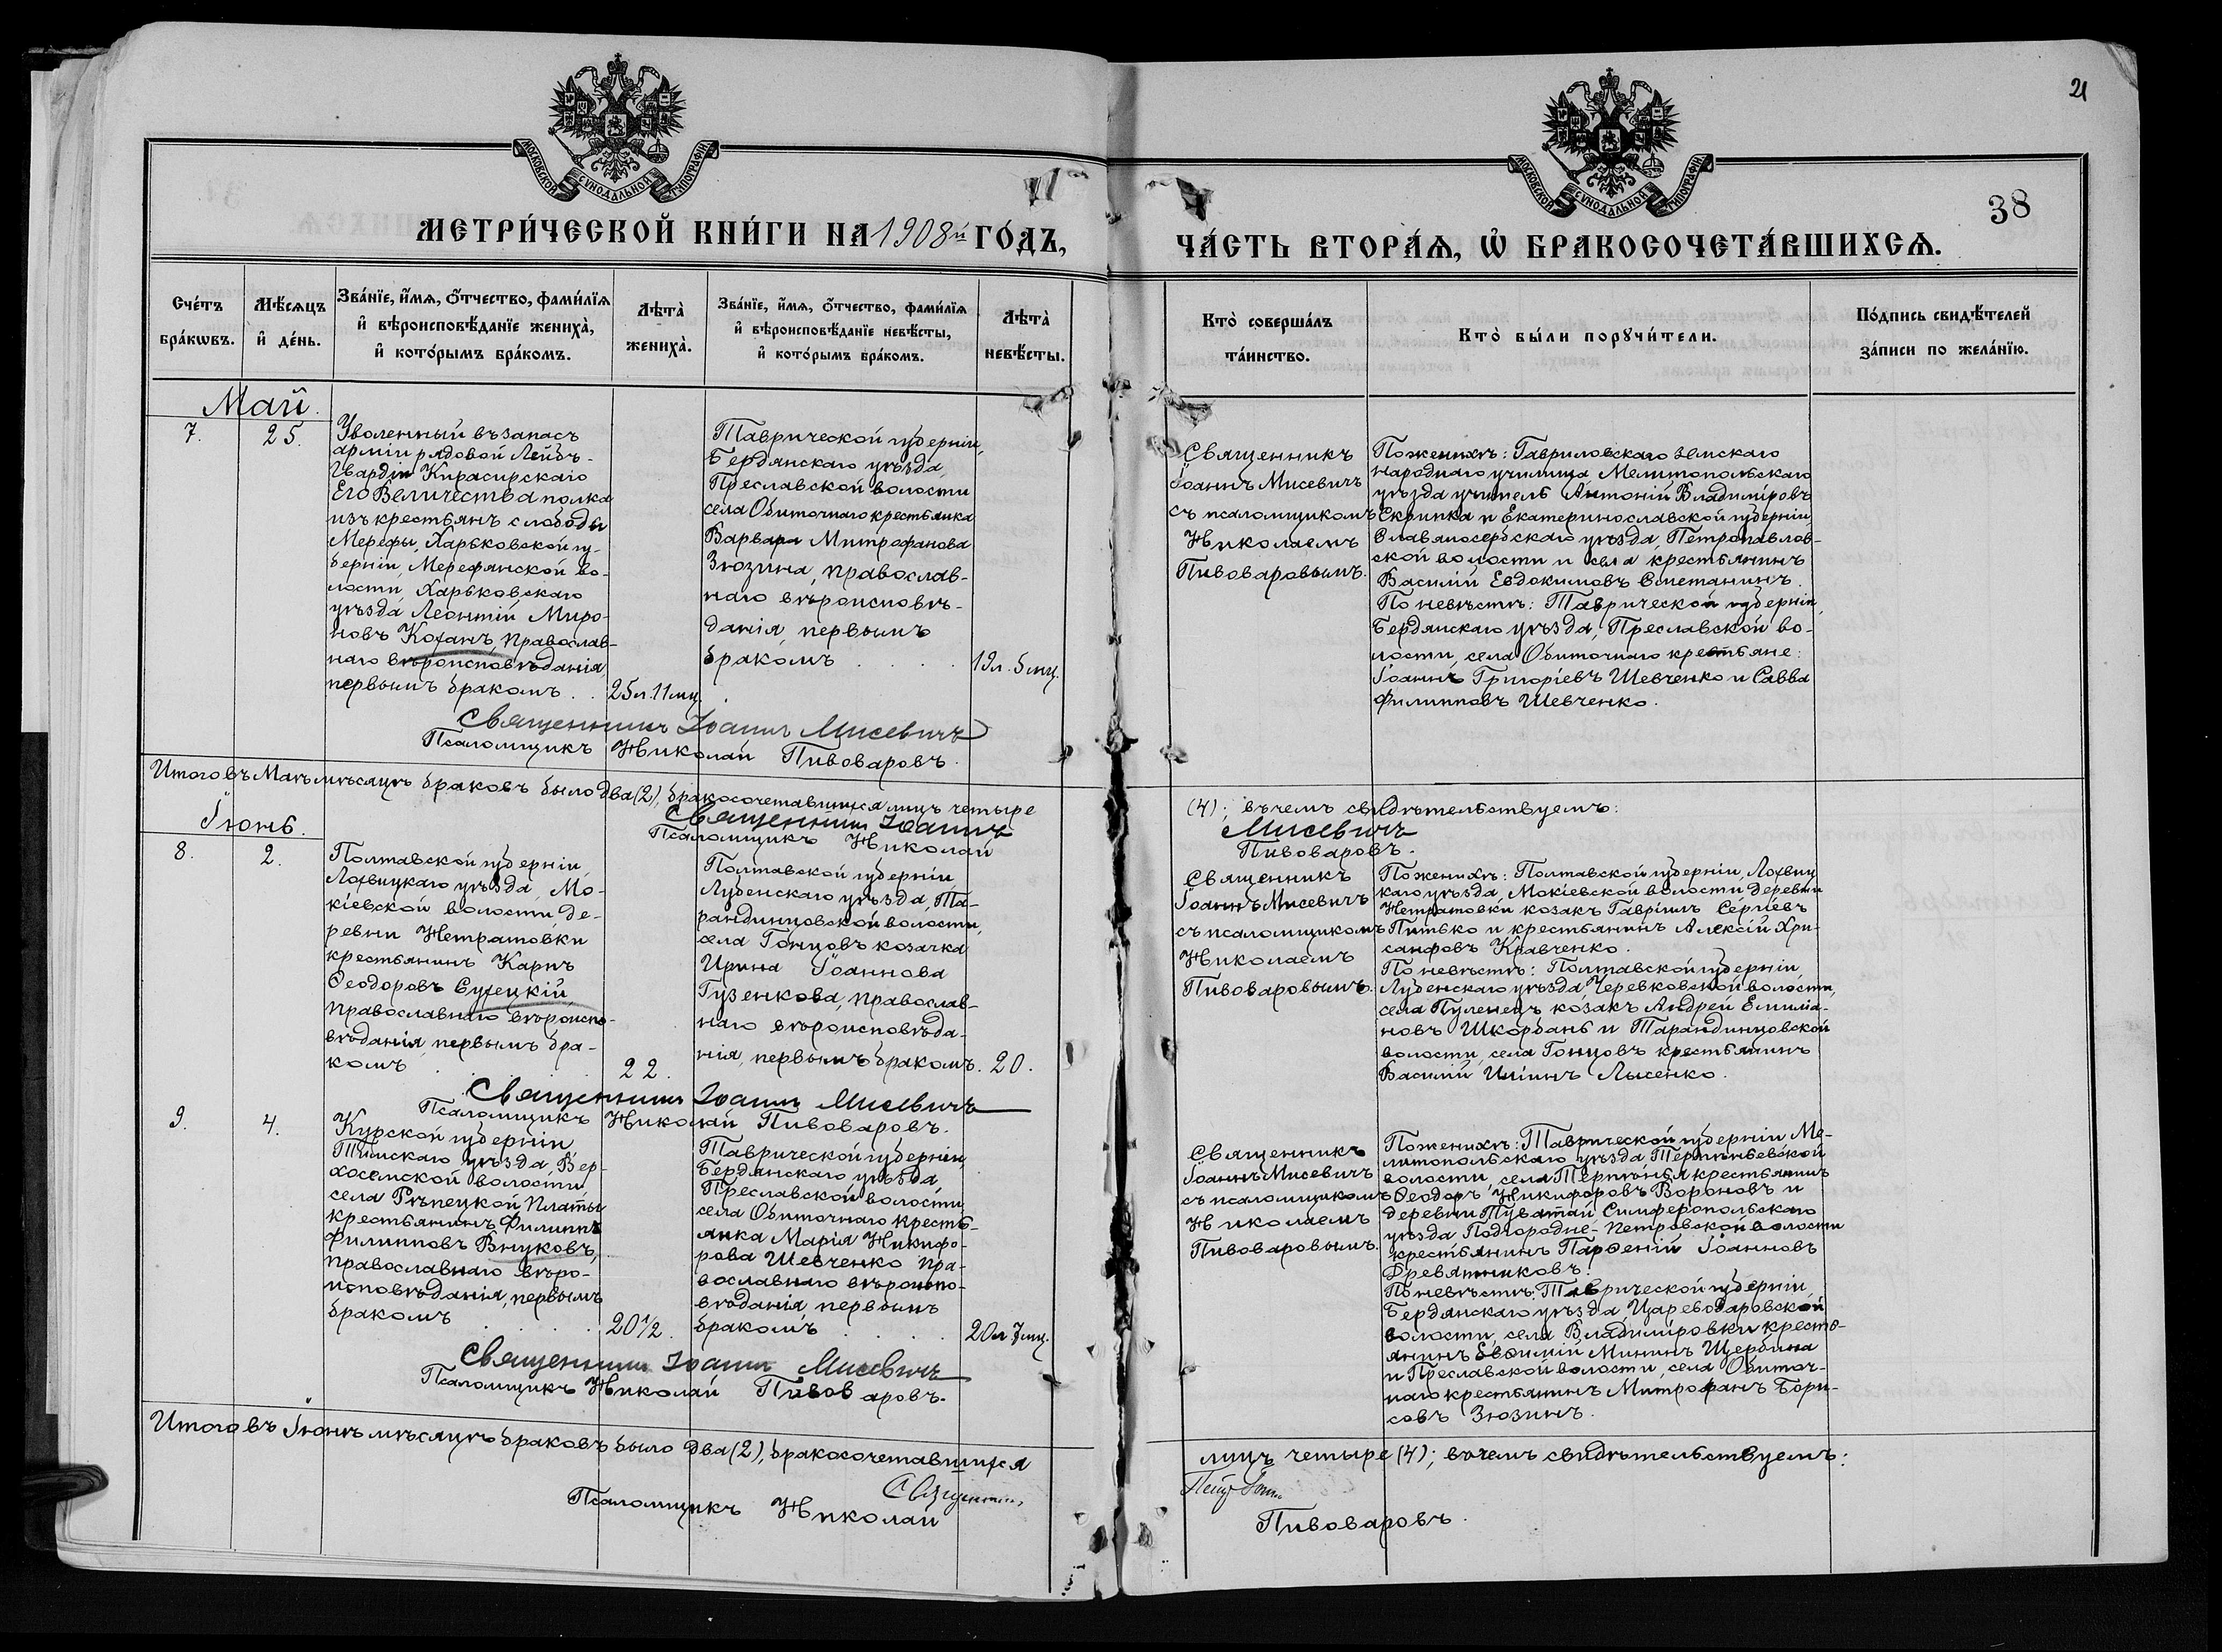 21
38
МОСКОВСКОЙ СѴНОДАЛЬНОЙ ТИПОГРАФІИ
МОСКОВСКОЙ СѴНОДАЛЬНОЙ ТИПОГРАФІИ
МЕТРИ́ЧЕСКОЙ КНИ́ГИ НА 1908й ГО́ДЪ,
ЧА́СТЬ ВТОРА́Ѧ, Ѡ҆ БРАКОСОЧЕТА́ВШИХСѦ.
Сче́тъ
бра́кѡвъ.
Мѣ́сѧцъ
и҆ де́нь.
Зва́нїе, и҆́мѧ, ѻ҆́тчество, фами́лїѧ
и҆ вѣроисповѣ́данїе жениха̀,
и҆ кото́рымъ бра́комъ.
Лѣта̀
жениха̀.
Зва́нїе, и҆́мѧ, ѻ҆́тчество, фами́лїѧ
и҆ вѣроисповѣ́данїе невѣ́сты,
и҆ кото́рымъ бра́комъ.
Лѣта̀
невѣ́сты.
Кто̀ соверша́лъ
та́инство.
Кто̀ бы́ли порꙋчи́тели.
По́дпись свидѣ́телей
за́писи по жела́нїю.
Май.
7.
25.
Уволенный въ запасъ
арміи рядовой Лейбъ-
Гвардіи Кирасирскаго
Его Величества полка
изъ крестьянъ слободы
Мерефы, Харьковской гу-
берніи, Мерефянской во-
лости, Харьковскаго
уѣзда Леонтій Миро-
новъ Коханъ, православ-
наго вѣроисповѣданія,
первымъ бракомъ . .
25 л. 11 мц.
Таврической губерніи,
Бердянскаго уѣзда,
Преславской волости
села Обиточнаго крестьянка
Варвара Митрофанова
Зюзина, православ-
наго вѣроисповѣ-
данія, первымъ
бракомъ . . . .
19 л. 5 мц.
Священникъ
Іоаннъ Мисевичъ
съ псаломщикомъ
Николаемъ
Пивоваровымъ.
По женихѣ: Гавриловскаго земскаго
народнаго училища, Мелитопольскаго
уѣзда учитель Антоній Владиміровъ
Скрипка и Екатеринославской губерніи,
Славяносербскаго уѣзда, Петропавлов-
ской волости и села крестьянинъ
Василій Евдокимовъ Сметанинъ.
По невѣстѣ: Таврической губерніи,
Бердянскаго уѣзда, Преславской во-
лости, села Обиточнаго крестьяне:
Іоаннъ Григоріевъ Шевченко и Савва
Филипповъ Шевченко.
Священникъ Іоаннъ Мисевичъ
Псаломщикъ Николай Пивоваровъ.
Итого въ Маѣ мѣсяцѣ браковъ было два (2), бракосочетавшихся лицъ четыре
(4); въ чемъ свидѣтельствуемъ:
Священникъ Іоаннъ
Мисевичъ
Псаломщикъ Николай
Пивоваровъ.
Іюнь.
8.
2.
Полтавской губерніи,
Лохвицкаго уѣзда, Мо-
кіевской волости де-
ревни Нетратовки
крестьянинъ Карпъ
Ѳеодоровъ Сухецкій,
православнаго вѣроиспо-
вѣданія, первымъ бра-
комъ . . . .
22.
Полтавской губерніи
Лубенскаго уѣзда, Та-
рандинцовской волости,
села Гонцовъ козачка
Ирина Іоаннова
Гузенкова, православ-
наго вѣроисповѣда-
нія, первымъ бракомъ.
20.
Священникъ
Іоаннъ Мисевичъ
съ псаломщикомъ
Николаемъ
Пивоваровымъ.
По женихѣ: Полтавской губерніи, Лохвиц
каго уѣзда, Мокіевской волости деревни
Нетратовки козакъ Гавріилъ Сергіевъ
Питько и крестьянинъ Алексій Хри-
санфовъ Кравченко.
По невѣстѣ: Полтавской губерніи,
Лубенскаго уѣзда Черевковской волости,
села Пуленецъ козакъ Андрей Емиліа-
новъ Шкорбань и Тарандинцовской
волости, села Гонцовъ крестьянинъ
Василій Иліинъ Лысенко.
Священникъ Іоаннъ Мисевичъ
Псаломщикъ Николай Пивоваровъ.
9.
4.
Курской губерніи
Тимскаго уѣзда, Вер-
хосемской волости
села Рѣпецкой Платы
крестьянинъ Филиппъ
Филипповъ Внуковъ,
православнаго вѣро-
исповѣданія, первымъ
бракомъ . . . .
20½.
Таврической губерніи,
Бердянскаго уѣзда
Преславской волости,
села Обиточнаго кресть-
янка Марія Никифо-
рова Шевченко пра-
вославнаго вѣроиспо-
вѣданія, первымъ
бракомъ . . . .
20 л 7 мц.
Священникъ
Іоаннъ Мисевичъ
съ псаломщикомъ
Николаемъ
Пивоваровымъ.
По женихѣ: Таврической губерніи Ме-
литопольскаго уѣзда Терпѣньевской
волости, села Терпѣнья крестьянинъ
Ѳеодоръ Никифоровъ Вороновъ и
деревни Туватай Симферопольскаго
уѣзда Подгородне-Петровской волости
крестьянинъ Парѳеній Іоанновъ
Древятниковъ.
По невѣстѣ: Таврической губерніи,
Бердянскаго уѣзда, Цареводаровской
волости, села Владиміровки кресть-
янинъ Евѳимій Мининъ Щербина
и Преславской волости, села Обиточ-
наго крестьянинъ Митрофанъ Бори-
совъ Зюзинъ.
Священникъ Іоаннъ Мисевичъ
Псаломщикъ Николай Пивоваровъ.
Итого въ Іюнѣ мѣсяцѣ браковъ было два (2), бракосочетавшихся
лицъ четыре (4); въ чемъ свидѣтельствуемъ:
Священникъ
Псаломщикъ Николай
Пивоваровъ.